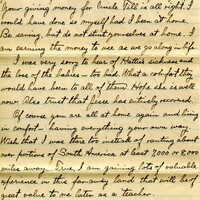 Your giving money for Uncle Till is all right. I
would have done so myself had I been at home.
Be saving, but do not stint yourselves at home. I
am earning the money to use as we go along in life.
I was very sorry to hear of Hattie's sickness and
the loss of the babies - too bad. What a comfort they
would have been to all of them. Hope she is well
now. Also trust that Jesse has entirely recovered.
Of course you are all at home again and living
in comfort - having everything your own way.
Wish that I was there too instead of ranting about
over portions of South America at least 7000 or 8,000
miles away. True I am gaining lots of valuable
experience in this far-away land that will be of
great value to me later as a teacher.